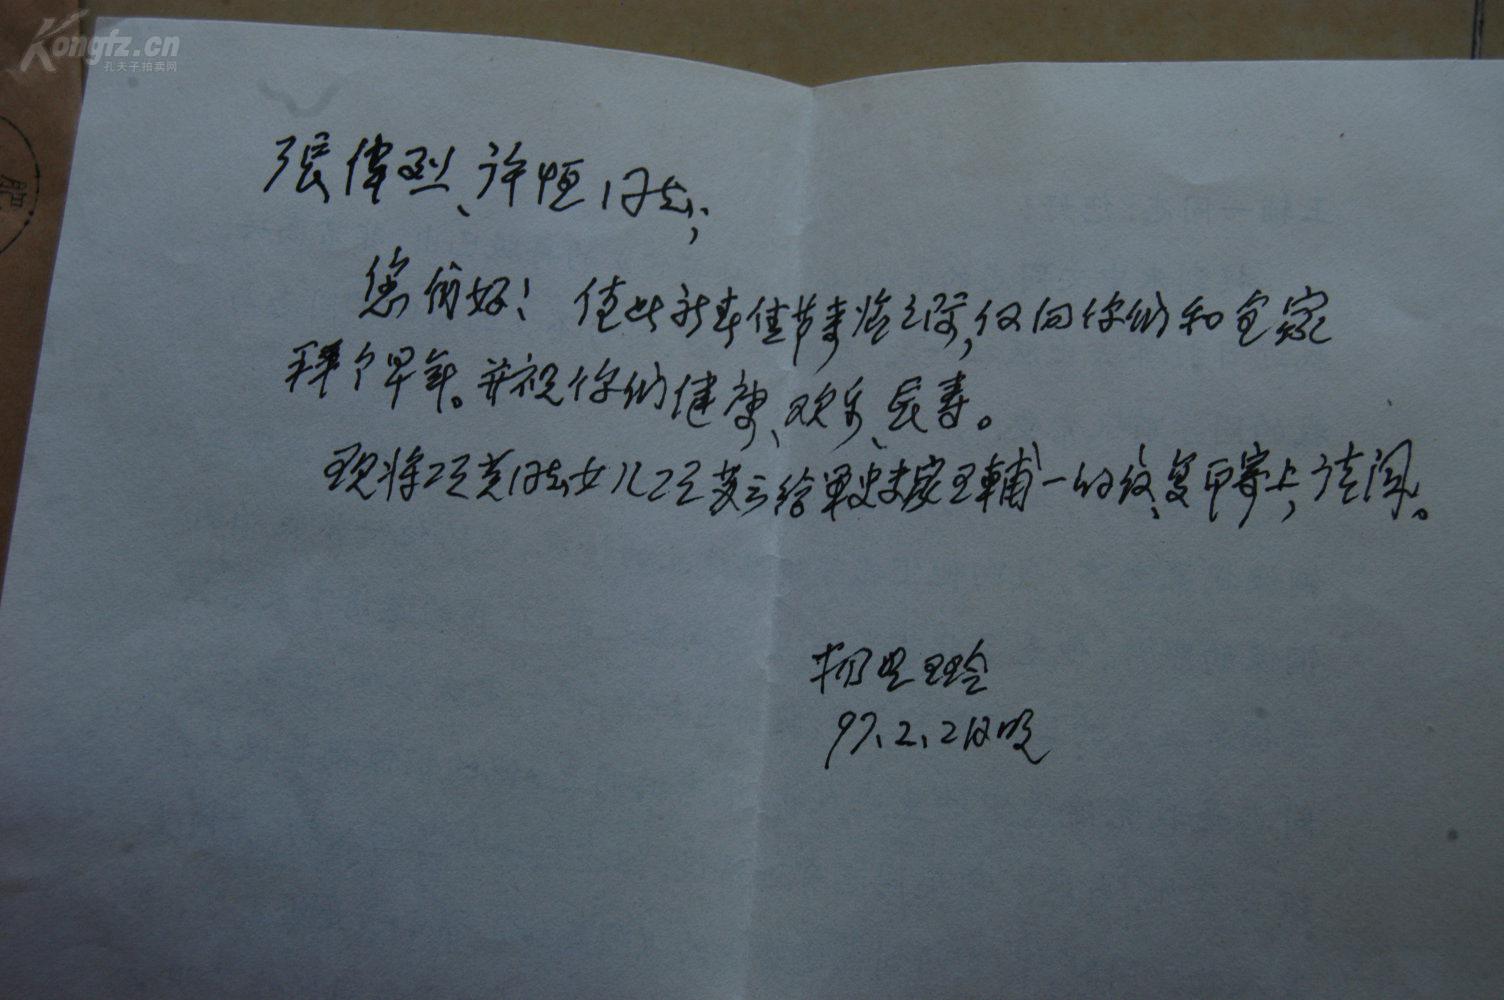 Kongfz.cn
孔夫子拍卖网
张偉烈、许恒同志:
您们好！值此新春佳节来临之际,仅向你们和全家
拜个早年。并祝你们健康、欢乐、长寿。
现将项英同志女儿项苏云给军史专家王輔一的信,复印寄上,请阅。
杨思玲
97.2.2日晚